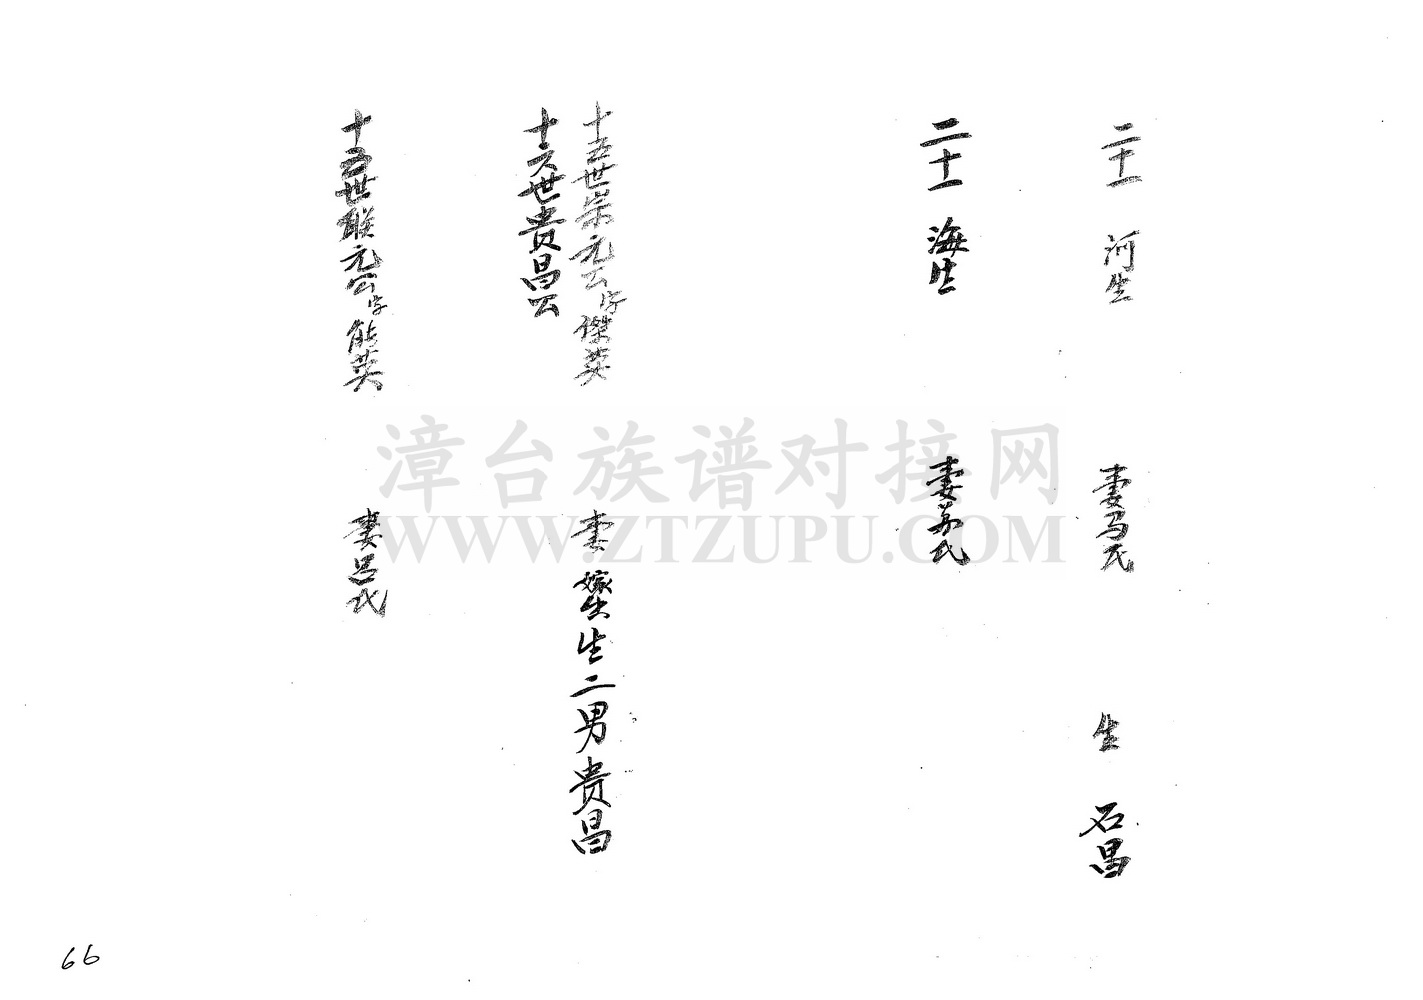 二十一 河生 妻马氏 生 石昌
二十一 海生 妻苏氏
十五世崇元公字傑英 妻 生二男贵昌
十六世贵昌公
十五世联元公字能英 妻吕氏
漳台族谱对接网
WWW.ZTZUPU.COM
66